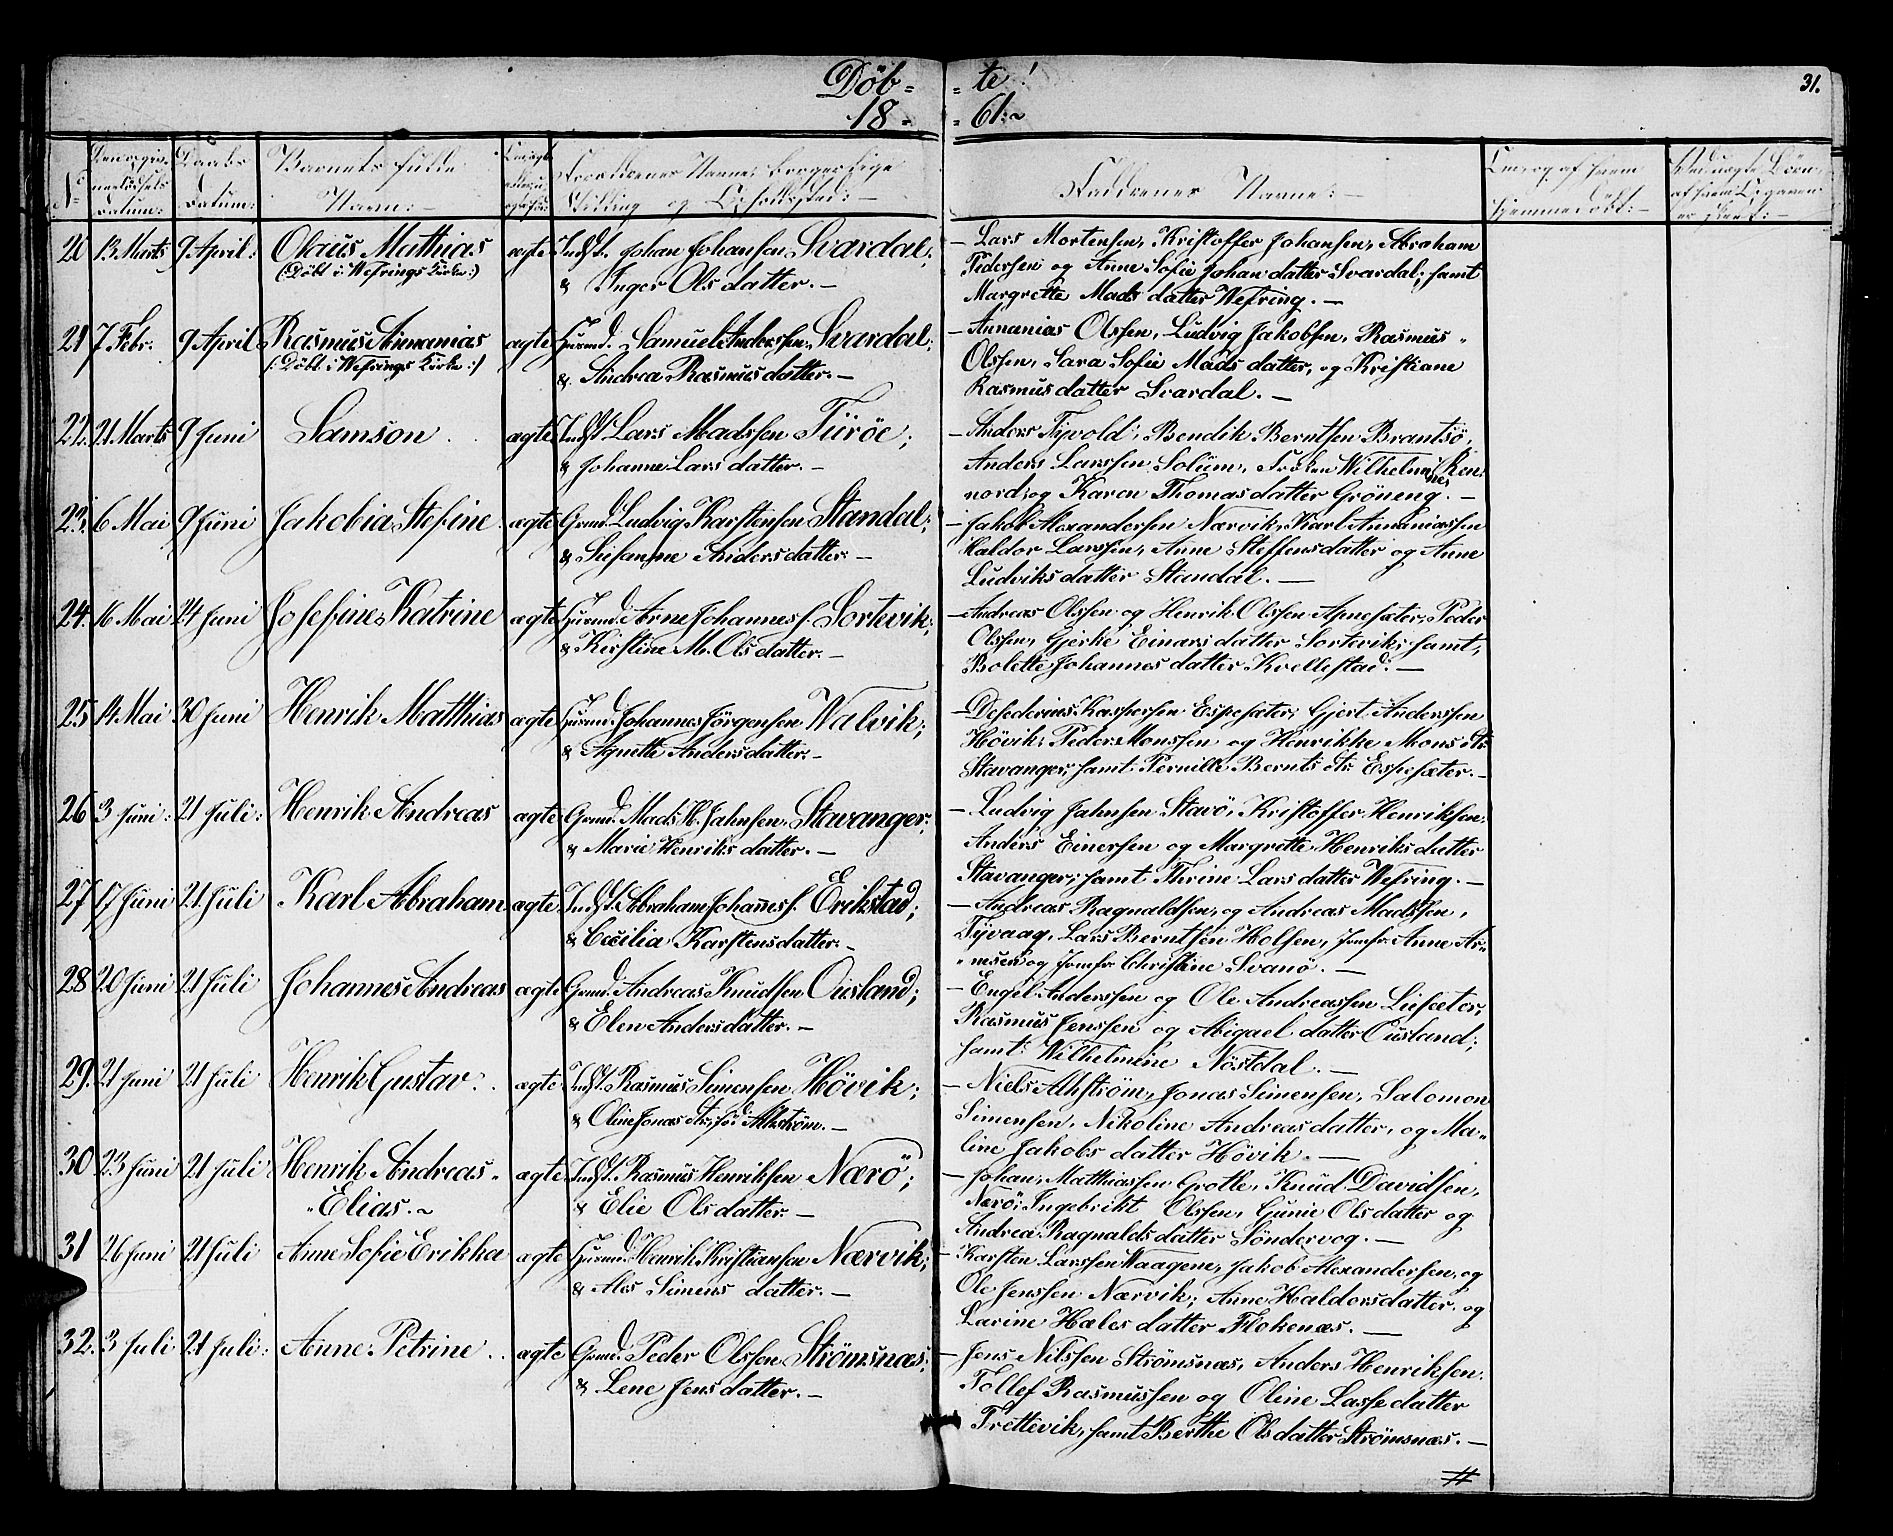 Døb= =te!
18= =61.~
31.
No
Datum:
Daabs
Datum:
Barnets fulde
Navn:-
Forældrenes Navne, borgerlige
Stilling og Opholdssted:-
Faddrenes Navne:-
hjemmedøbt:-
20 13 Marts 9 April: Olaus Mathias ægte Indst. Johan Johansen Svardal;
(:Döbt i Wefrings Kirke:) & Inger Olsdatter.-
- Lars Mortensen, Kristoffer Johansen, Abraham
Pedersen og Anne Sofie Johandatter Svardal, samt
Margrette Madsdatter Wefring.-
21 7 Febr. 9 April Rasmus Annanias ægte Huusmd. Samuel Anderssen, Svardal;
(:Döbt i Wefrings Kirke:) & Andrea Rasmusdatter.-
- Annanias Olssen, Ludvig Jakobsen, Rasmus
Olssen, Sara Sofie Madsdatter, og Kristiane
Rasmusdatter Svardal.-
22. 21 Marts 9 Juni Samson ægte Indst Lars Madssen Türöe;
& Johanne Larsdatter.-
- Anders Tyvold, Bendik Berntsen Brantsö,
Anders Larssen Solüm, Frøken Wilhelmine Ren-
nord, og Karen Thomasdatter Gröneng.-
23. 6 Mai 9 Juni Jakobia Stefine ægte Grmd. Ludvig Karstensen Standal;
& Susanne Andersdatter.-
- Jakob Alexandersen Nærvik, Karl Annaniassen
Haldor Larssen, Anne Steffensdatter og Anne
Ludviksdatter Standal.-
24. 16 Mai 24 Juni Josefine Katrine ægte Huusmd. Arne Johanness. Sortevik;
& Kirstine M. Olsdatter.-
- Andreas Olssen og Henrik Olssen Apnesæter, Peder
Olssen, Gjerke Einarsdatter Sortevik, samt,
Bolette Johannesdatter Kvellestad.-
25 14 Mai 30 Juni Henrik Matthias ægte Huusmd. Johannes Jörgensen Walvik;
& Agnette Andersdatter.-
- Desederius Kaspersen Espesæter, Gjert Anderssen
Hövik, Peder Monssen og Henrikke Monsdtr
Stavanger, samt Pernille Berntsdtr Espesæter.-
26 3 Juni: 21 Juli: Henrik Andreas ægte Grmd. Mads H. Jahnsen, Stavanger;
& Marie Henriksdatter.-
- Ludvig Jahnsen Starö, Kristoffer Henriksen,
Anders Einersen og Margrette Henriksdatter
Stavanger, samt Thrine Larsdatter Wefring.-
27 17 Juni 21 Juli Karl Abraham ægte Indst. Abraham Johanness. Erikstad;
& Cecilia Karstensdatter.-
- Andreas Ragnaldsen, og Andreas Madssen,
Tyvaag, Lars Berntsen Holsen, Jomfr. Anne Ar=
=nesen og Jomfr Christine Svanö.-
28 20 Juni 21 Juli Johannes Andreas ægte Grmd. Andreas Knudsen Ousland;
& Elen Andersdatter.-
- Engel Anderssen og Ole Andreassen Lisæter,
Rasmus Jenssen og Abigael datter Ousland;
samt Wilhelmine Nöstdal.-
29. 21 Juni 21 Juli Henrik Gustav. ægte Indst. Rasmus Simensen Hövik;
& Oline Jonasdtr, föd Alhström.-
- Niels Alhström, Jonas Simensen, Salomon
Simensen, Nikoline Andreasdatter, og Ma=
line Jakobsdatter Hövik.-
30 23 Juni 21 Juli Henrik Andreas= ægte Indst. Rasmus Henriksen Nærö;
=Elias.~ & Elie Olsdatter.-
- Johan Matthiassen Grotle, Knüd Davidsen,
Nærö; Ingebrikt Olssen, Gunie Olsdatter og
Andrea Ragnaldsdatter Söndervog.-
31 26 Juni 21 Juli Anne Sofie Erikka ægte Huusmd. Henrik Kristiansen Nærvik;
& Ales Simensdatter.-
- Karsten Larssen Waagene, Jakob Alexandersen, og
Ole Jenssen Nærvik; Anne Haldorsdatter og
Larine Halesdatter Flokenæs.-
32. 3 Juli 21 Juli: Anne Petrine ægte Grmd. Peder Olssen Strömsnæs;
& Lene Jensdatter.-
- Jens Nilssen Strömsnæs, Anders Henriksen,
Tollef Rasmussen og Oline Lassedatter
Trettevik, samt Berthe Olsdatter Strömsnæs.-